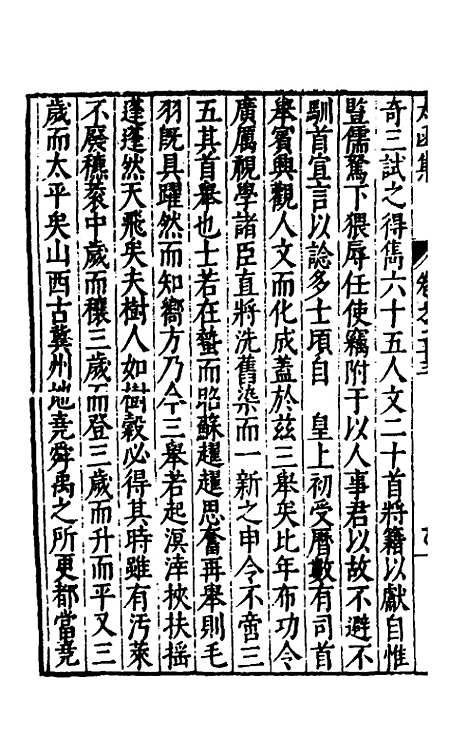 太函集
卷之二十三
奇三試之得儁六十五人文二十首將籍以獻自惟
暨儒駑下猥辱任使竊附于以人事君以故不避不
馴首宣言以諗多士頃自　皇上初受曆數有司首
舉賓興觀人文而化成蓋於茲三舉矣比年布功令
廣厲視學諸臣直將洗舊染而一新之申令不啻三
五其首舉也士若在蟄而昭蘇趯趯思奮再舉則毛
羽旣具躍然而知嚮方乃今三舉若起溟涬挾扶搖
蓬蓬然天飛矣夫樹人如樹穀必得其時雖有汚萊
不廢穮蔉中歲而穰三歲而登三歲而升而平又三
歲而太平矣山西古冀州地堯舜禹之所更都當堯